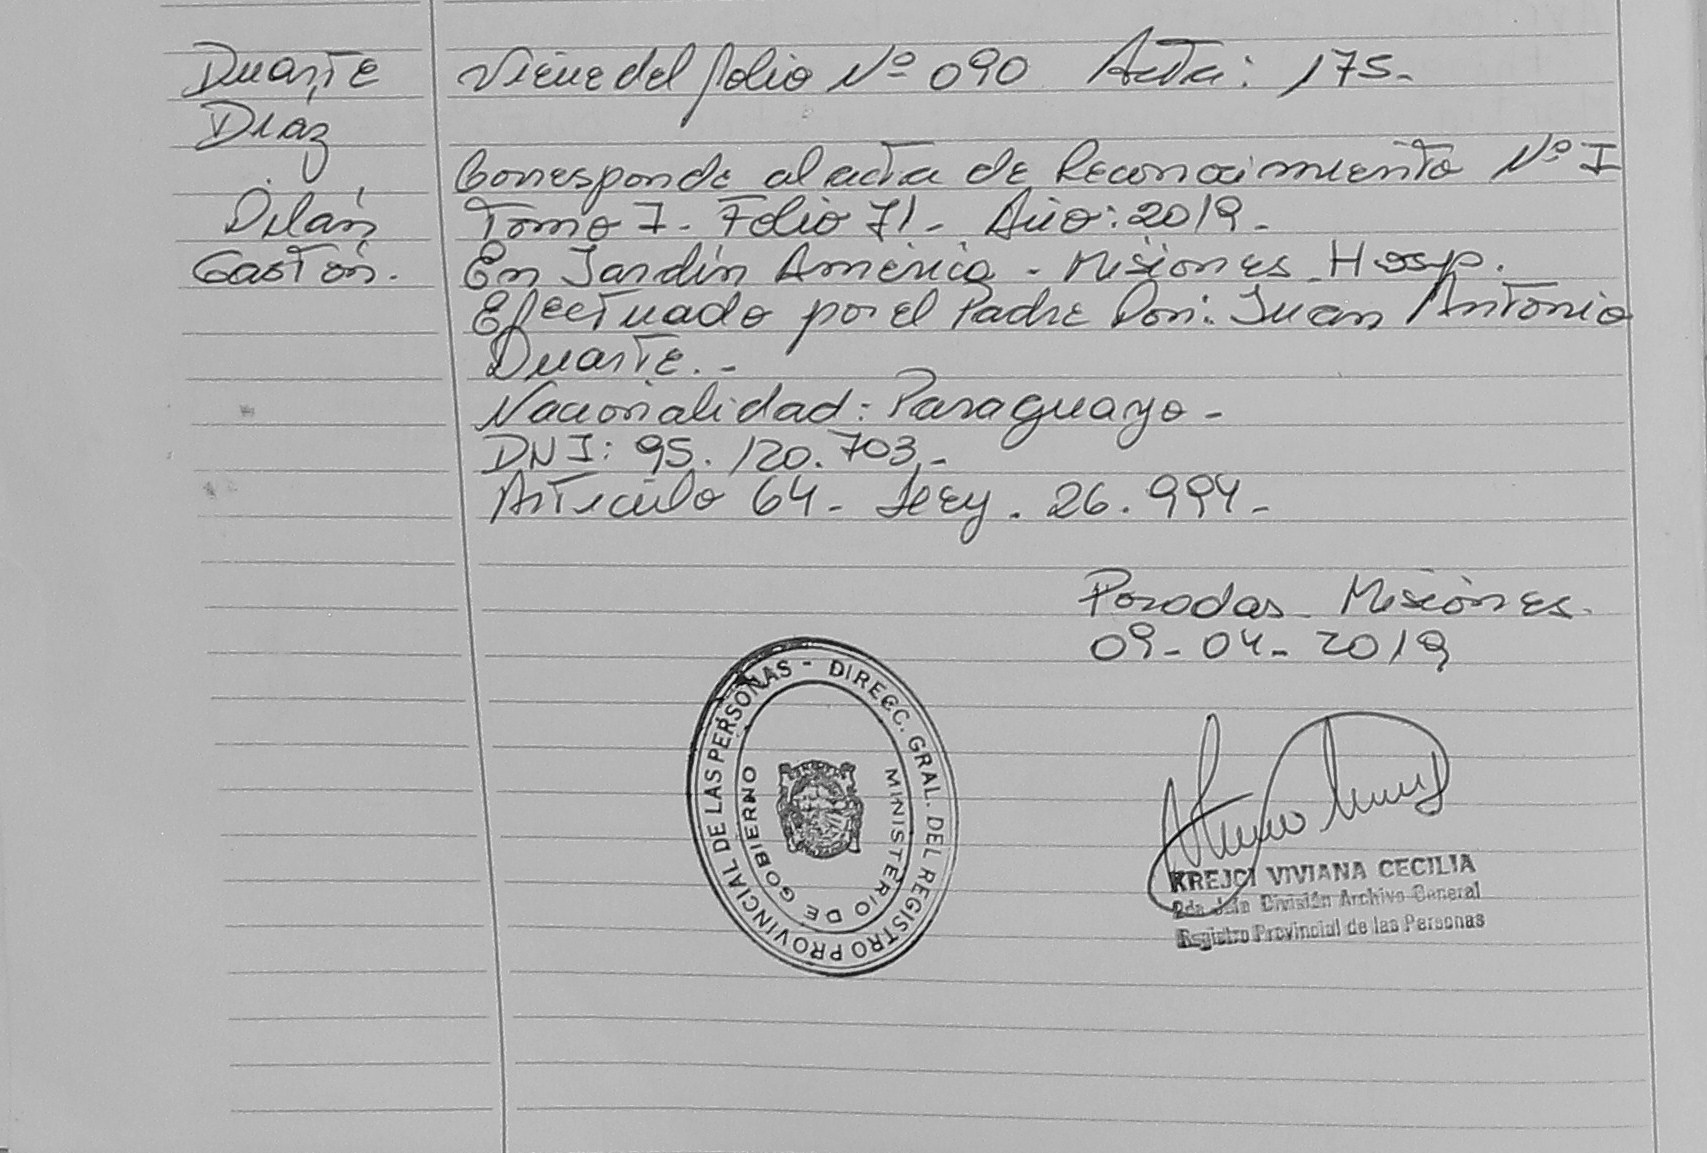 Duarte
Díaz
Dilán
Gastón.
Viene del folio Nº 090 Acta: 175.-
Corresponde al acta de Reconocimiento Nº I
Tomo 7 - Folio 71 - Año: 2019 -
En Jardín América - Misiones Hosp.
Efectuado por el Padre Don: Juan Antonio
Duarte. -
Nacionalidad: Paraguayo -
DNI: 95.120.703 -
Artículo 64 - Ley . 26.994 -
Posadas Misiones.
09-04-2019
DIRECC. GRAL. DEL REGISTRO PROVINCIAL DE LAS PERSONAS -
MINISTERIO DE GOBIERNO
KREJCI VIVIANA CECILIA
2da Jefa División Archivo General
Registro Provincial de las Personas